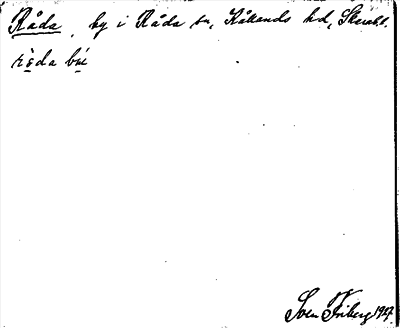 Råda, by i Råda sn, Kållands hd, Skarabl.
rä̀da búi
Sven Friberg 1927.